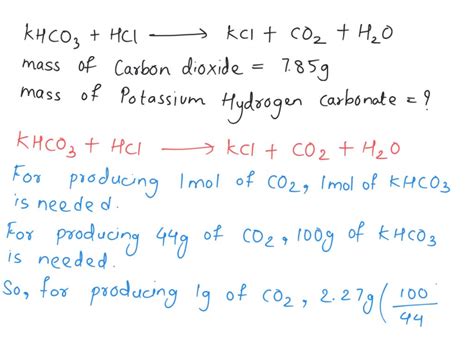 KHCO₃ + HCl ⟶ KCl + CO₂ + H₂O
mass of Carbon dioxide = 7.85g
mass of Potassium Hydrogen carbonate = ?
KHCO₃ + HCl ⟶ KCl + CO₂ + H₂O
For producing 1mol of CO₂, 1mol of KHCO₃
is needed.
For producing 44g of CO₂, 100g of KHCO₃
is needed.
So, for producing 1g of CO₂, 2.27g (100/44